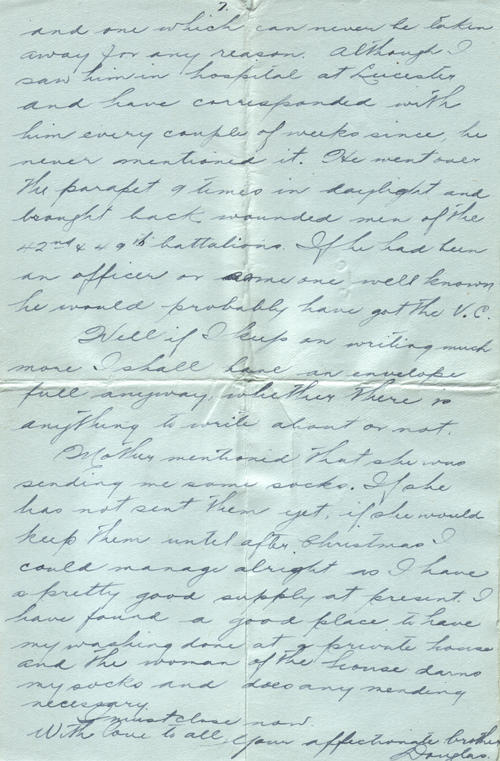 7.
and one which can never be taken
away for any reason. Although I
saw him in hospital at Leicester
and have corresponded with
him every couple of weeks since, he
never mentioned it. He went over
the parapet 9 times in daylight and
brought back wounded men of the
42nd & 49th battalions. If he had been
an officer or some one well known
he would probably have got the V.C.
Well if I keep on writing much
more I shall have an envelope
full anyway, whether there is
anything to write about or not.
Mother mentioned that she was
sending me some socks. If she
has not sent them yet, if she would
keep them until after Christmas I
could manage alright as I have
a pretty good supply at present. I
have found a good place to have
my washing done at a private house
and the woman of the house darns
my socks and does any mending
necessary.
I must close now.
With love to all, Your affectionate brother
Douglas.